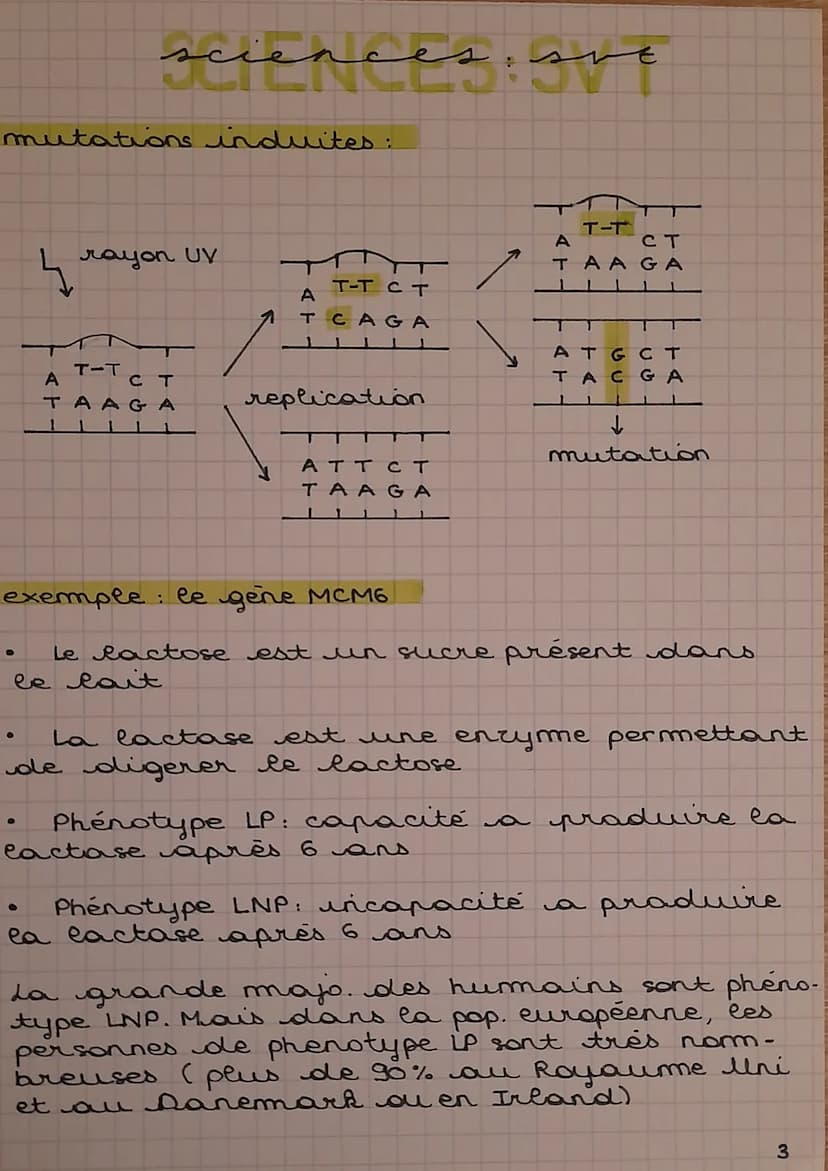 SCIENCES: SVT
sciences: svt
mutations induites:
rayon UV
A T-T C T
T A A G A
A T-T C T
T C A G A
replication
A T T C T
T A A G A
A T-T C T
T A A G A
A T G C T
T A C G A
mutation
exemple: le gène MCM6
• Le lactose est un sucre présent dans
le lait
• La lactase est une enzyme permettant
de digerer le lactose
• Phénotype LP: capacité a produire la
lactase après 6 ans
• Phénotype LNP: incapacité a produire
la lactase après 6 ans
La grande majo. des humains sont phéno-
type LNP. Mais dans la pop. européenne, les
personnes de phenotype LP sont très nom-
breuses (plus de 90% au Royaume Uni
et au Danemark ou en Irland)
3